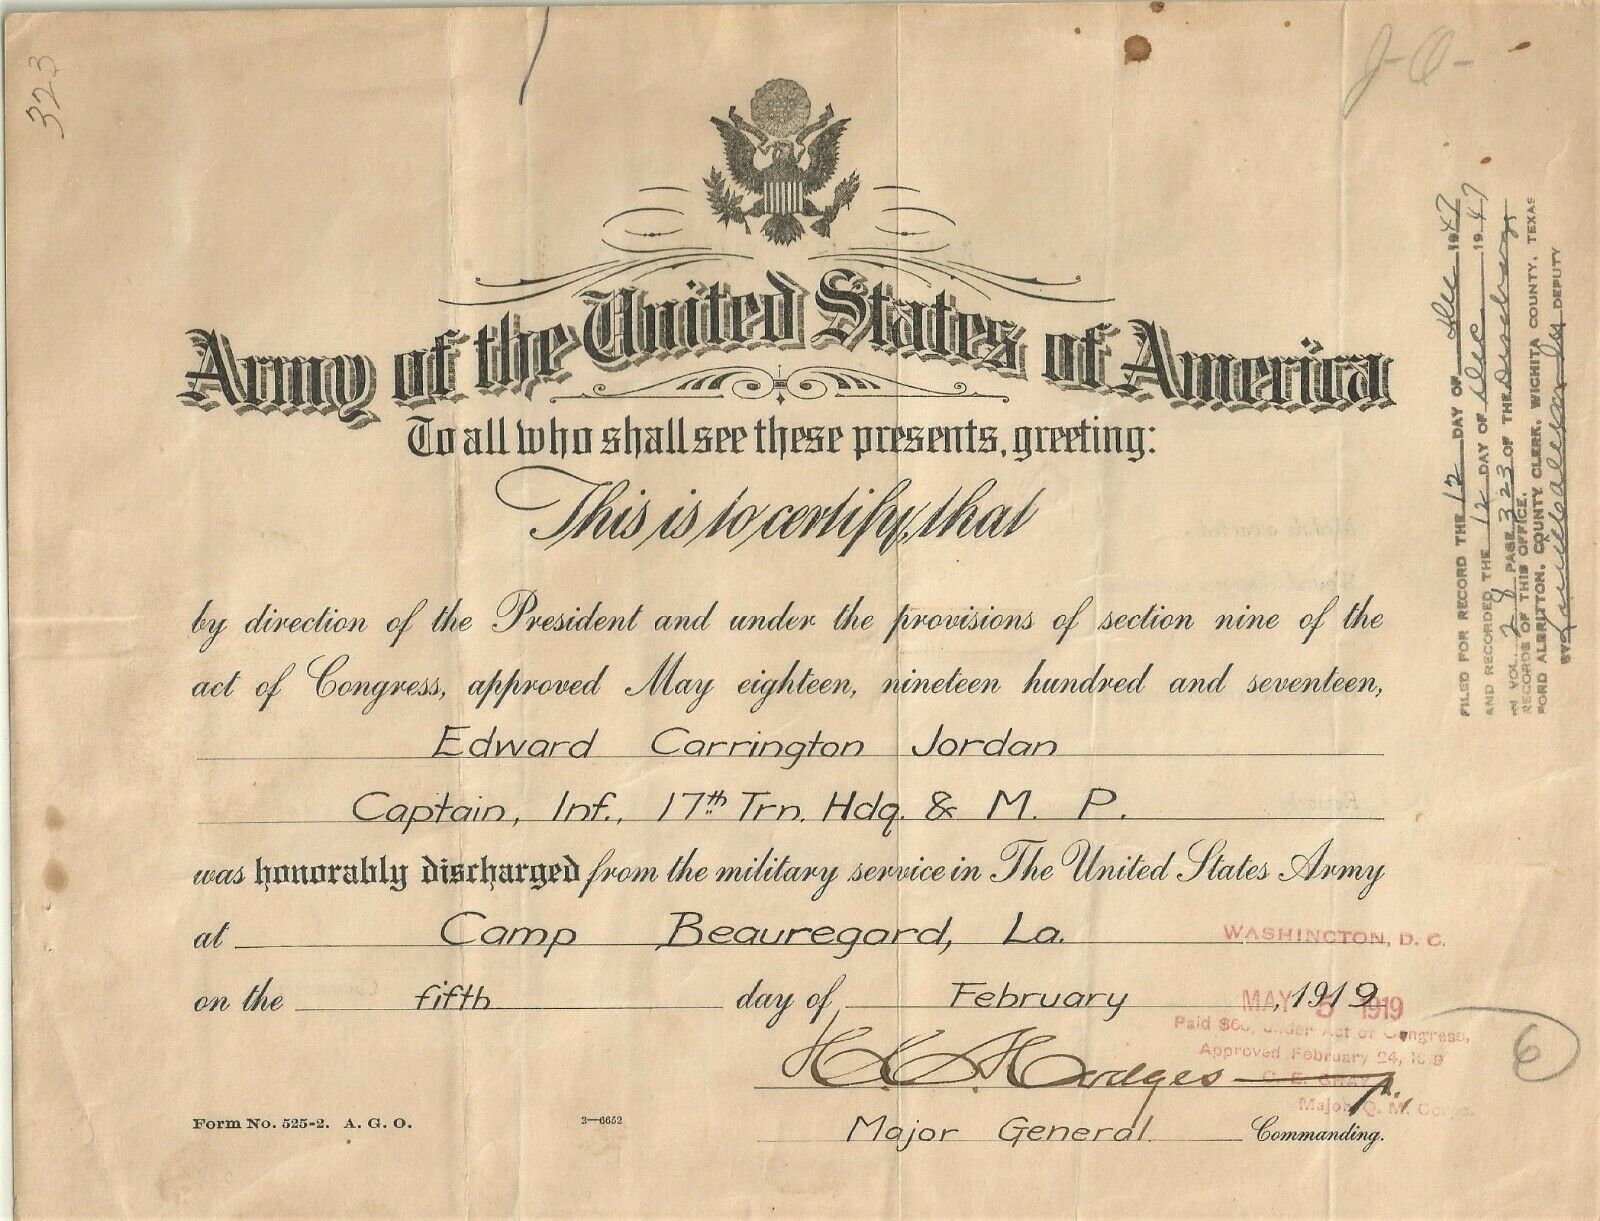 323
J-O-
Army of the United States of America
To all who shall see these presents, greeting:
This is to certify, that
by direction of the President and under the provisions of section nine of the
act of Congress, approved May eighteen, nineteen hundred and seventeen,
Edward Carrington Jordan
Captain, Inf., 17th Trn. Hdq. & M. P.
was honorably discharged from the military service in The United States Army
at Camp Beauregard, La.
on the fifth day of February, 1919
H C Hodges Jr.,
Major General Commanding.
Form No. 525-2. A. G. O.
3—6652
WASHINGTON, D. C.
MAY 5 1919
Paid $60, under Act of Congress,
Approved February 24, 1919
Major, Q. M. Corps.
6
FILED FOR RECORD THE 12 DAY OF Dec 1947
AND RECORDED THE 12 DAY OF Dec 1947
IN VOL. 28 PAGE 323 OF THE Discharge
RECORDS OF THIS OFFICE.
FORD ALBRITTON, COUNTY CLERK, WICHITA COUNTY, TEXAS
BY DEPUTY